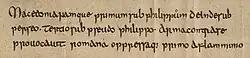 Macedoniaquoque primumsub philippum deindesub
perseo. Tertiosub pseudo philippo. Armacontra te
prouocauit romana oppressaq; primo aflamminio